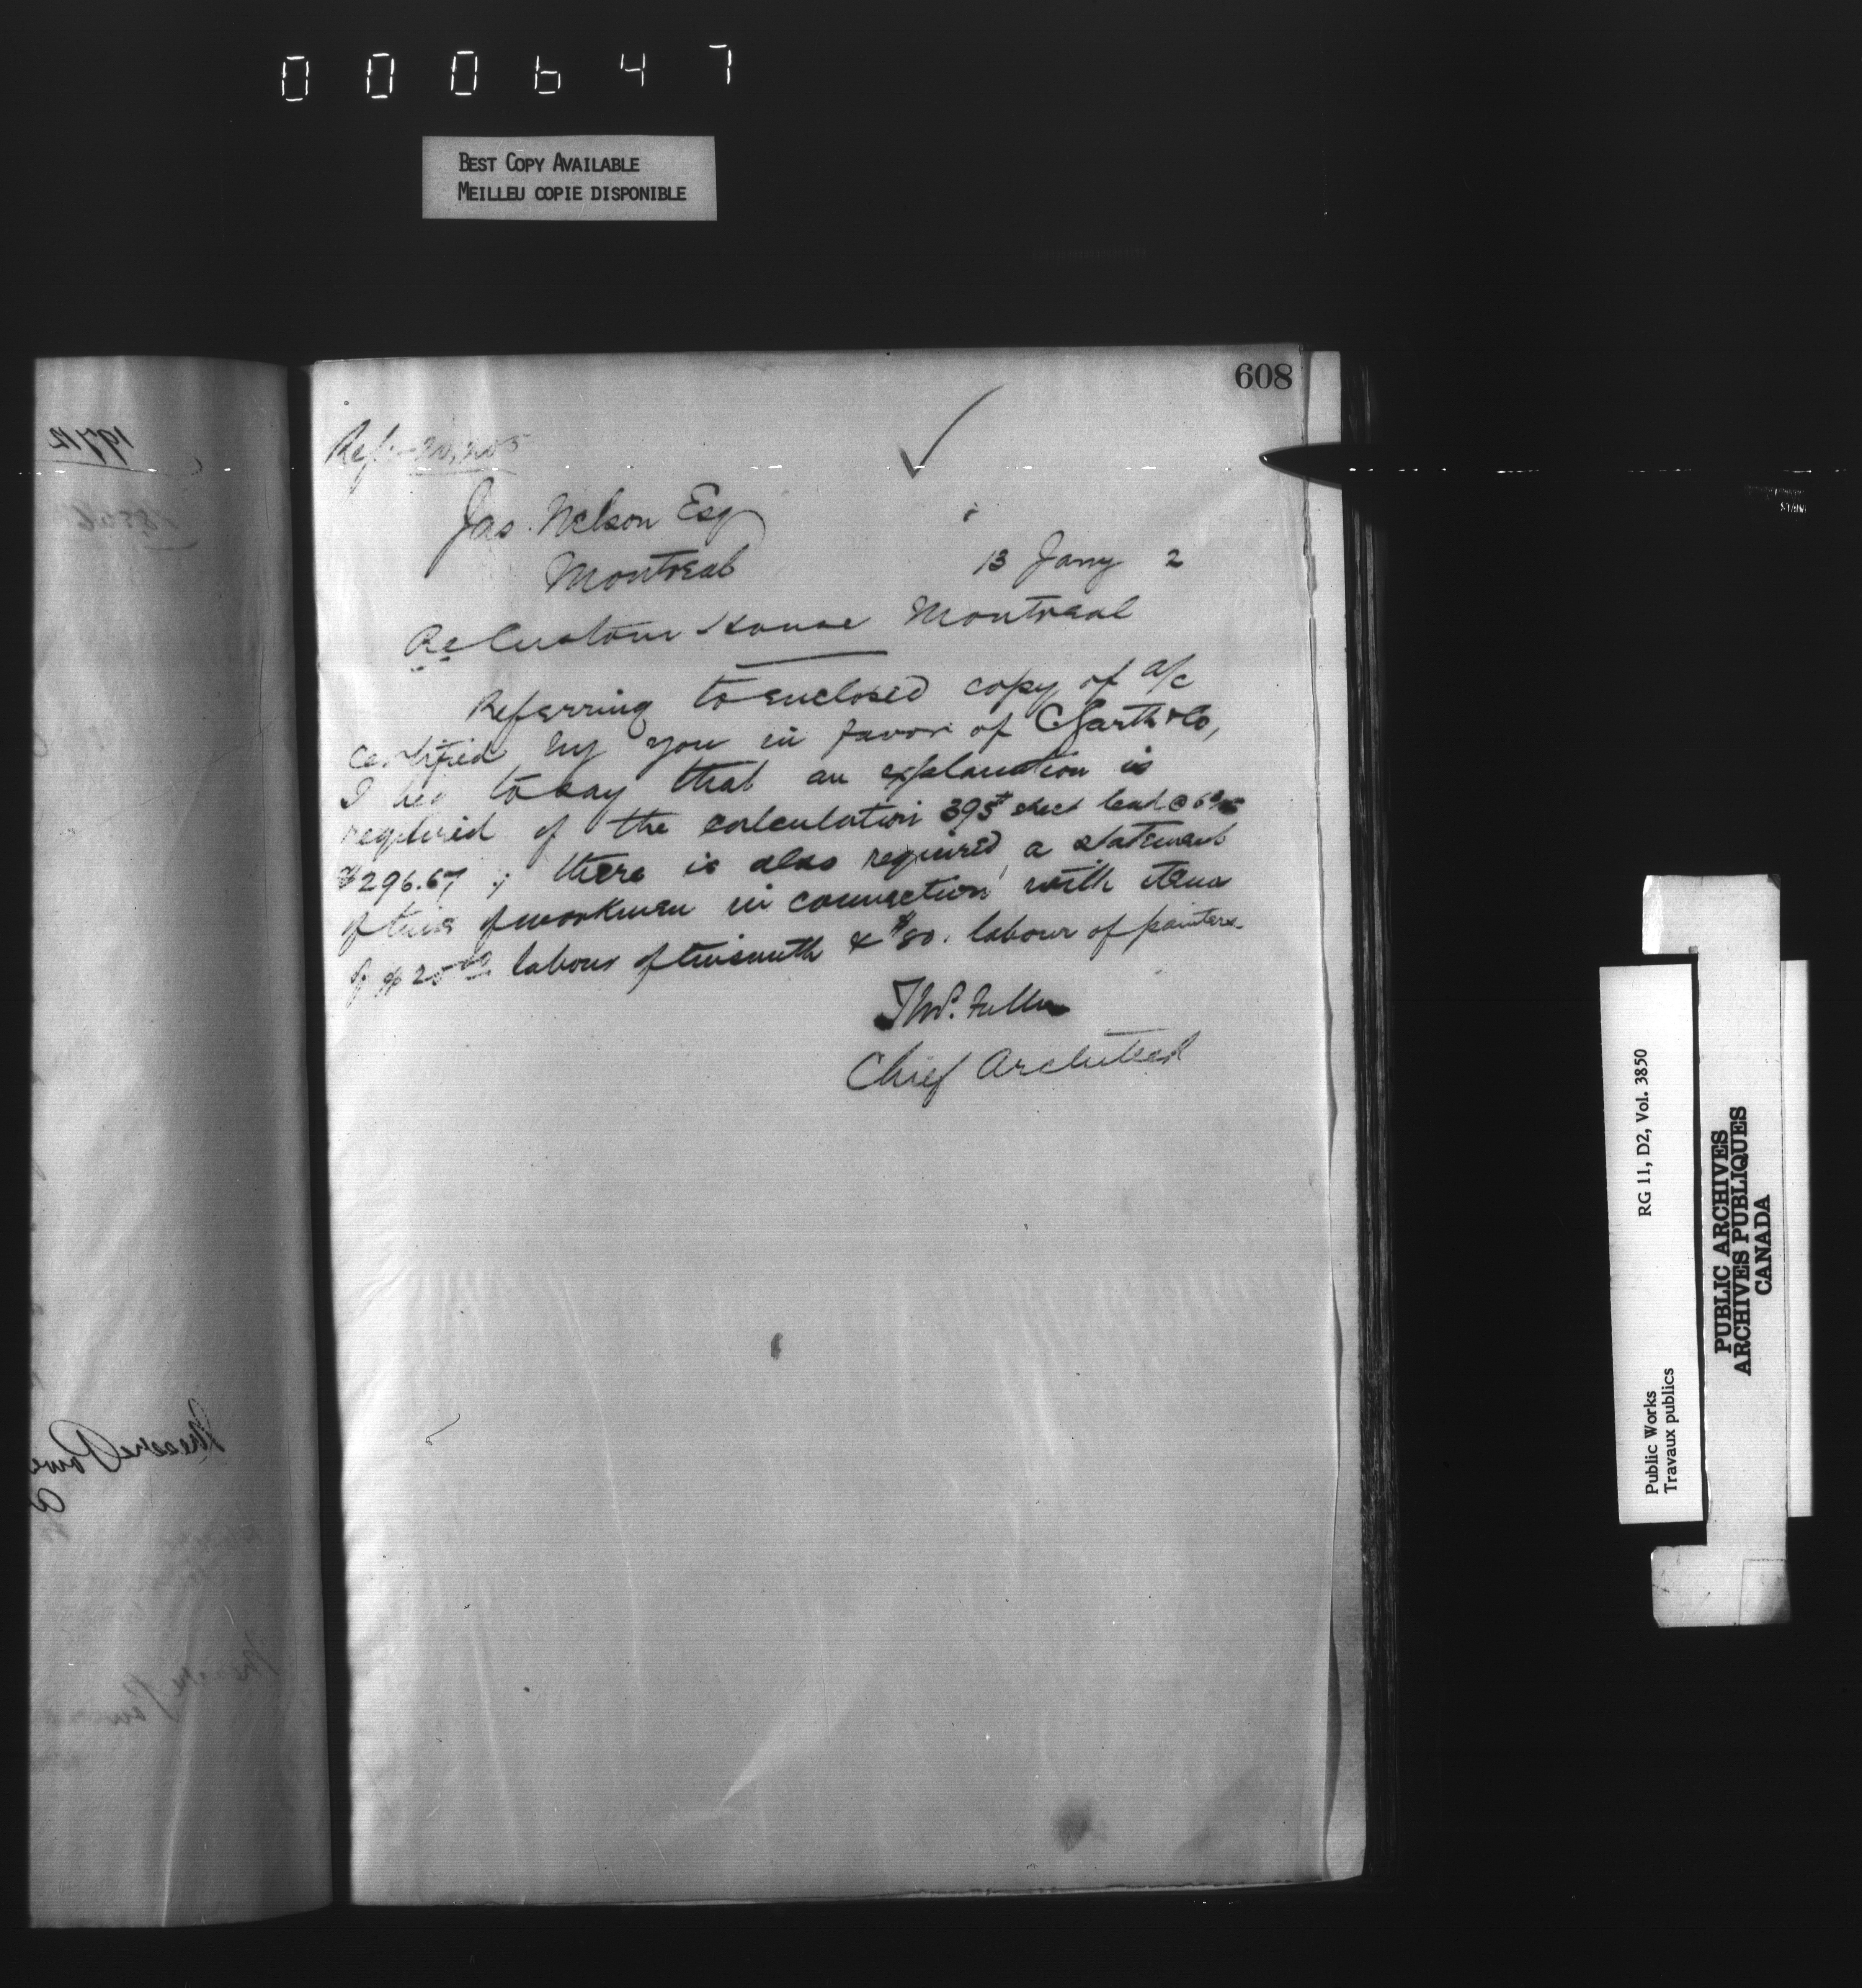 000647
BEST COPY AVAILABLE
MEILLEU COPIE DISPONIBLE
608
Ref.
Jas. Nelson Esq
Montreal
13 Jany 2
Re Custom House Montreal
Referring to enclosed copy of a/c
certified by you in favor of C Garth & Co,
I beg to say that an explanation is
required of the calculation 395# sheet lead @
$296.67; there is also required a statement
of time of workmen in connection with items
of $25.00 labour of tinsmith & $80. labour of painters.
Thos. Fuller
Chief Architect
RG 11, D2, Vol. 3850
Public Works
Travaux publics
PUBLIC ARCHIVES
ARCHIVES PUBLIQUES
CANADA